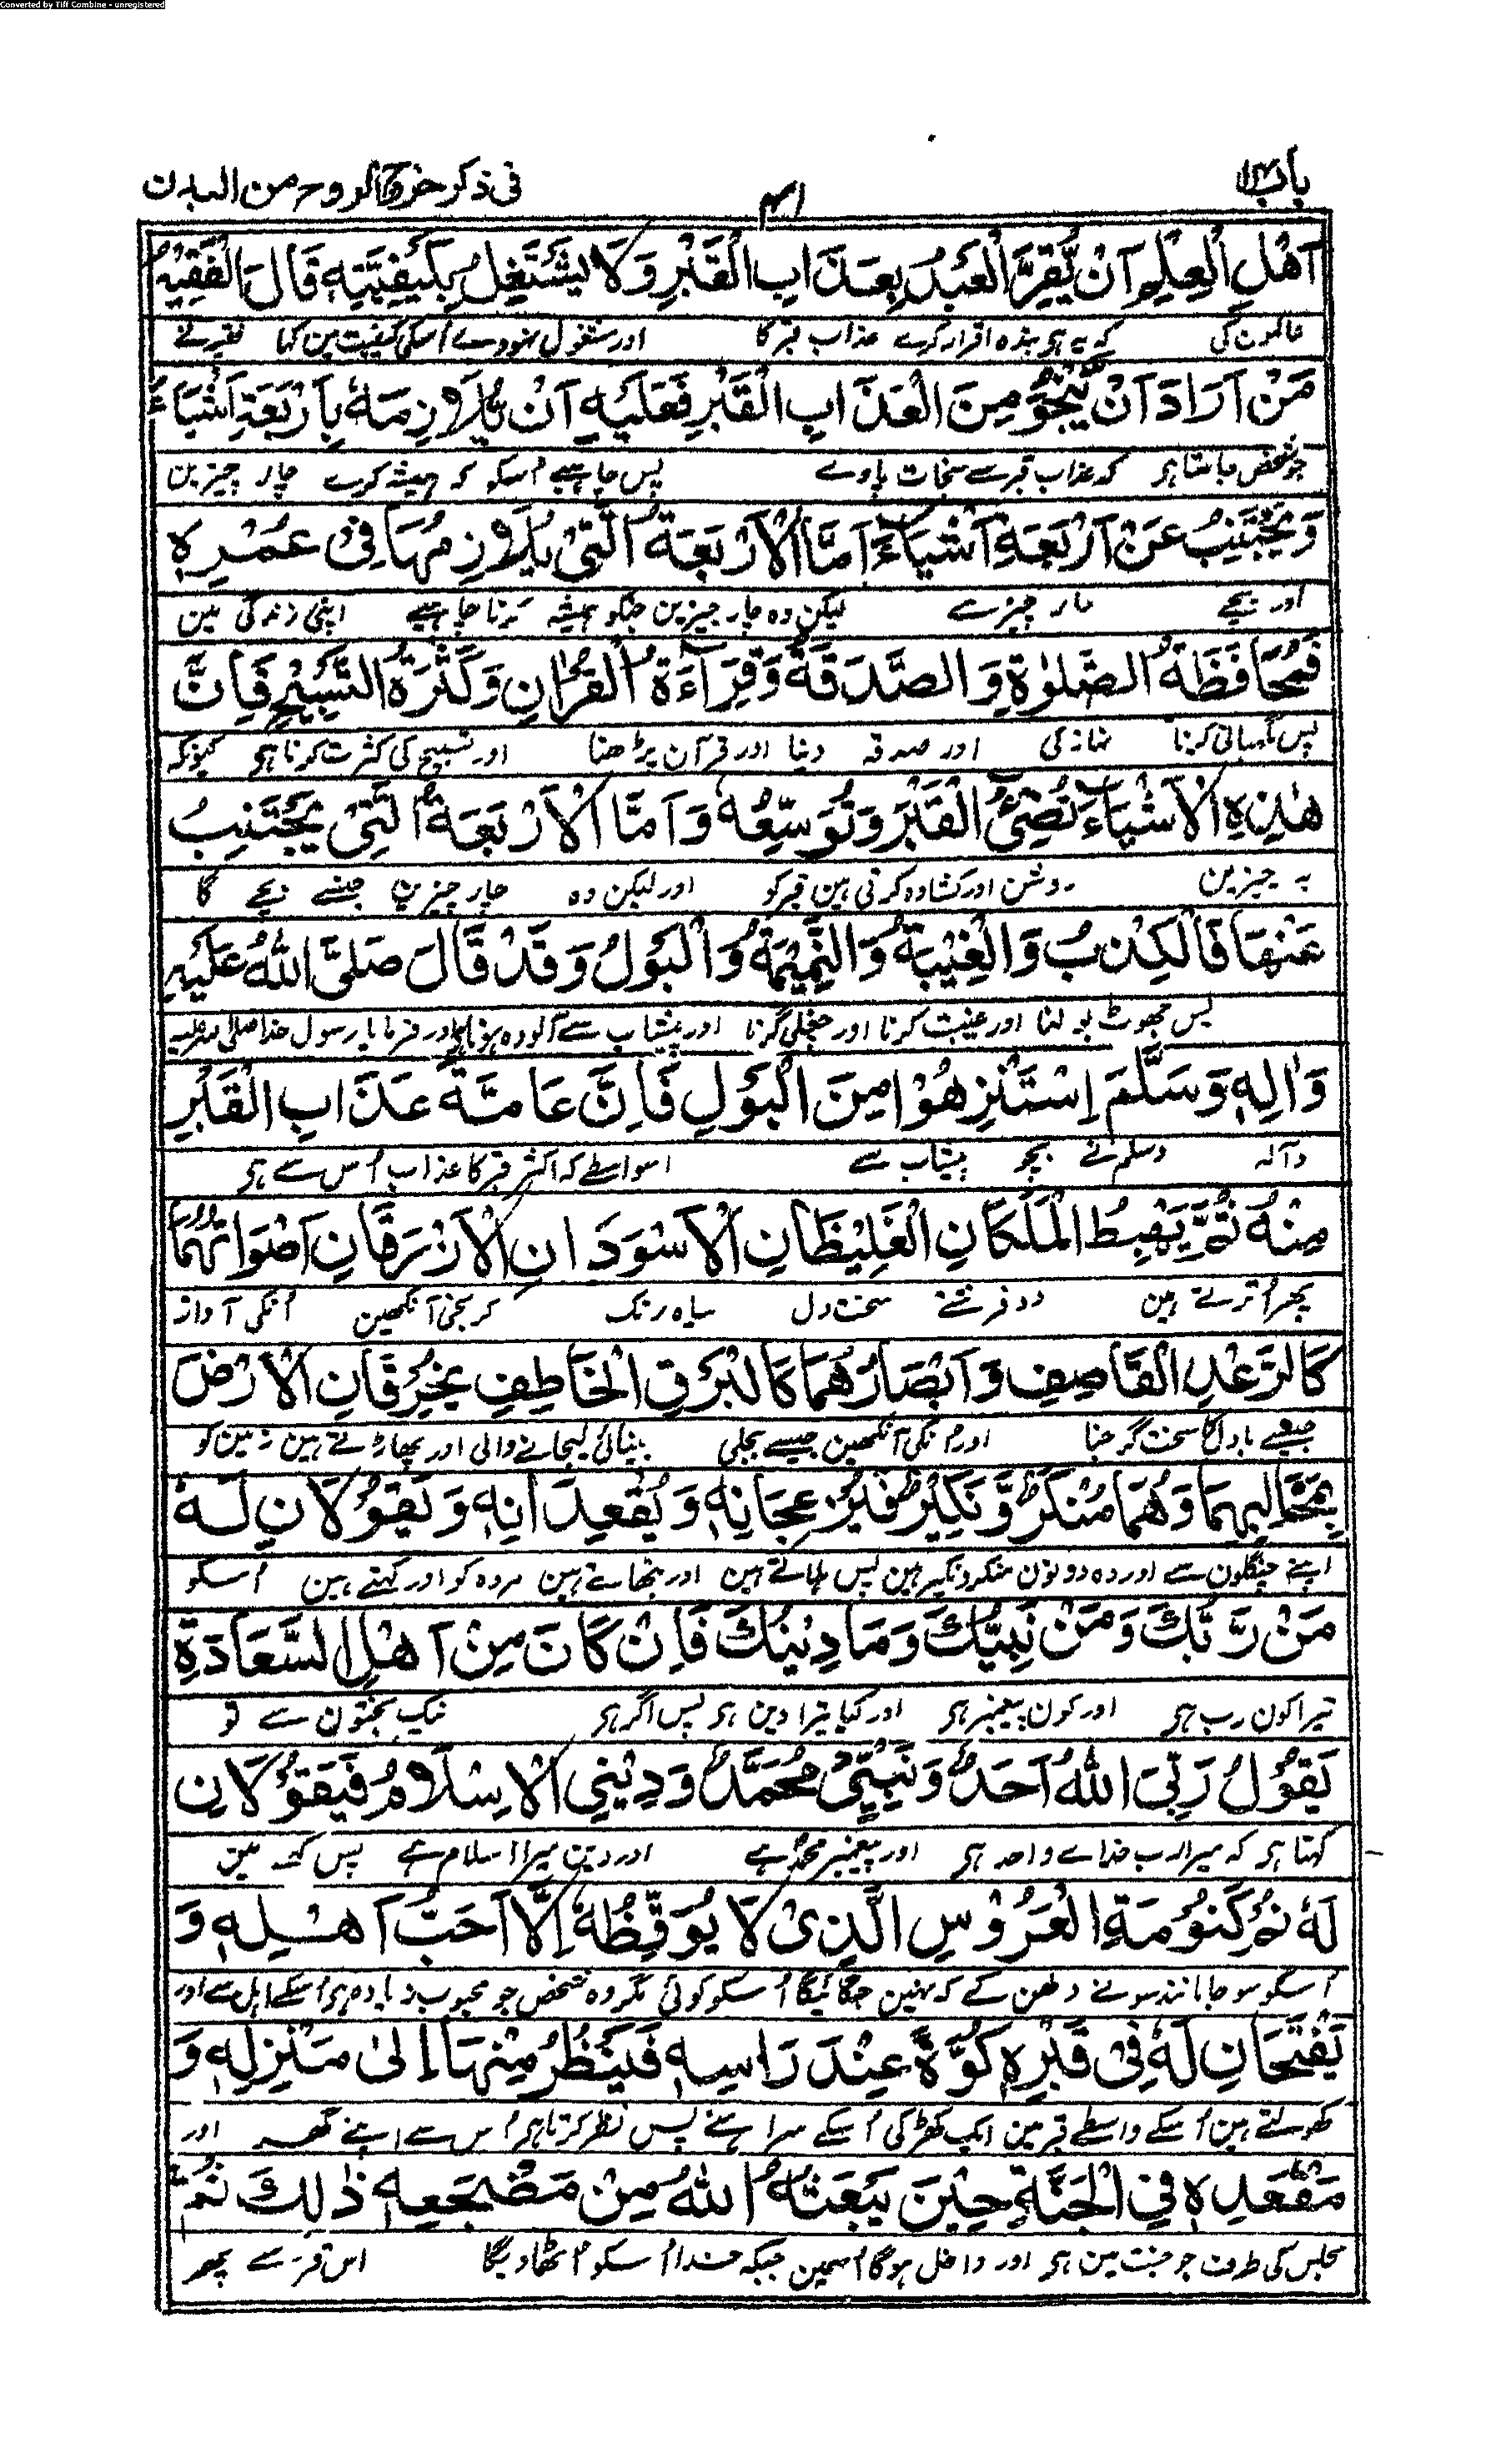 Converted by Tiff Combine - unregistered
باب ۱۳
۴۱
فی ذکر خروج الروح من البدن
اَهْلِ الْعِلْمِ اَنْ يُّقِرَّ الْعَبْدُ بِعَذَابِ الْقَبْرِ وَلَا يَشْتَغِلُ بِكَيْفِيَّتِهٖ قَالَ الْفَقِيْهُ
عالمون کی کہ یہ ہی بندہ اقرار کرے عذاب قبر کا اور مشغول نہووے اُسکی کیفیت مین کہا فقیہ نے
مَنْ اَرَادَ اَنْ يَّنْجُوَ مِنَ الْعَذَابِ الْقَبْرِ فَعَلَيْهِ اَنْ يُلَازِمَهٗ بِاَرْبَعَةِ اَشْيَاءَ
جو شخص چاہتا ہی کہ عذاب قبر سے نجات پاوے پس چاہیے اُسکو کہ ہمیشہ کرے چار چیزین
وَيَجْتَنِبُ عَنْ اَرْبَعَةِ اَشْيَاءَ اَمَّا الْاَرْبَعَةُ الَّتِىْ يُلَازِمُهَا فِىْ عُمْرِهٖ
اور بچے چار چیز سے لیکن وہ چار چیزین جنکو ہمیشہ کرنا چاہیے اپنی زندگی مین
فَمُحَافَظَةُ الصَّلٰوةِ وَالصَّدَقَةُ وَقِرَاءَةُ الْقُرْاٰنِ وَكَثْرَةُ التَّسْبِيْحِ فَاِنَّ
پس نگہبانی کرنا نماز کی اور صدقہ دینا اور قرآن پڑھنا اور تسبیح کی کثرت کرنا ہی کیونکہ
هٰذِهِ الْاَشْيَاءَ تُضِىْءُ الْقَبْرَ وَتُوَسِّعُهٗ وَاَمَّا الْاَرْبَعَةُ الَّتِىْ يَجْتَنِبُ
یہ چیزین روشن اور کشادہ کرتی ہین قبر کو اور لیکن وہ چار چیزین جنسے بچے گا
عَنْهَا فَالْكِذْبُ وَالْغِيْبَةُ وَالنَّمِيْمَةُ وَالْبَوْلُ وَقَدْ قَالَ صَلَّى اللّٰهُ عَلَيْهِ
پس جھوٹ بولنا اور غیبت کرنا اور چغلی کرنا اور پیشاب سے آلودہ ہونا ہی اور فرمایا رسول خدا صلی اللہ علیہ
وَاٰلِهٖ وَسَلَّمَ اِسْتَنْزِهُوْا مِنَ الْبَوْلِ فَاِنَّ عَامَّةَ عَذَابِ الْقَبْرِ
وآلہ وسلم نے بچو پیشاب سے اسواسطے کہ اکثر قبر کا عذاب اُس سے ہی
مِنْهُ ثُمَّ يَهْبِطُ الْمَلَكَانِ الْغَلِيْظَانِ الْاَسْوَدَانِ الْاَزْرَقَانِ اَصْوَاتُهُمَا
پھر اُترتے ہین دو فرشتے سخت دل سیاہ رنگ کرنجی آنکھین اُنکی آواز
كَالرَّعْدِ الْقَاصِفِ وَاَبْصَارُهُمَا كَالْبَرْقِ الْخَاطِفِ يَخْرِقَانِ الْاَرْضَ
جیسے بادل کا سخت گرجنا اور اُنکی آنکھین جیسے بجلی بینائی لیجانے والی اور پھاڑتے ہین زمین کو
بِمَخَالِيْبِهِمَا وَهُمَا مُنْكَرٌ وَّنَكِيْرٌ فَيُزْعِجَانِهٖ وَيُقْعِدَانِهٖ وَيَقُوْلَانِ لَهٗ
اپنے چنگلون سے اور وہ دونون منکر و نکیر ہین پس ہلاتے ہین اور بٹھاتے ہین مردہ کو اور کہتے ہین اُسکو
مَنْ رَّبُّكَ وَمَنْ نَبِيُّكَ وَمَا دِيْنُكَ فَاِنْ كَانَ مِنْ اَهْلِ السَّعَادَةِ
تیرا کون رب ہی اور کون پیغمبر ہی اور کیا تیرا دین ہی پس اگر ہی نیک بختون سے تو
يَقُوْلُ رَبِّىَ اللّٰهُ اَحَدٌ وَنَبِيِّىْ مُحَمَّدٌ وَدِيْنِى الْاِسْلَامُ فَيَقُوْلَانِ
کہتا ہی کہ میرا رب خداے واحد ہی اور پیغمبر محمد ہے اور دین میرا اسلام ہے پس کہتے ہین
لَهٗ نَمْ كَنَوْمَةِ الْعَرُوْسِ الَّذِىْ لَا يُوْقِظُهٗ اِلَّا اَحَبُّ اَهْلِهٖ وَ
اُسکو سو جا مانند سونے دلھن کے کہ نہین جگائیگا اُسکو کوئی مگر وہ شخص جو محبوب زیادہ ہی اُسکے اہل سے اور
يَفْتَحَانِ لَهٗ فِىْ قَبْرِهٖ كُوَّةً عِنْدَ رَاسِهٖ فَيَنْظُرُ مِنْهَا اِلٰى مَنْزِلِهٖ وَ
کھولتے ہین اُسکے واسطے قبر مین ایک کھڑکی اُسکے سراہنے پس نظر کرتا ہی اُس سے اپنے گھر اور
مَقْعَدِهٖ فِى الْجَنَّةِ حِيْنَ يَبْعَثُهُ اللّٰهُ مِنْ مَضْجَعِهٖ ذٰلِكَ ثُمَّ
مجلس کی طرف جو جنت مین ہی اور داخل ہوگا اُسمین جبکہ خدا اُسکو اُٹھاویگا اس قبر سے پھر